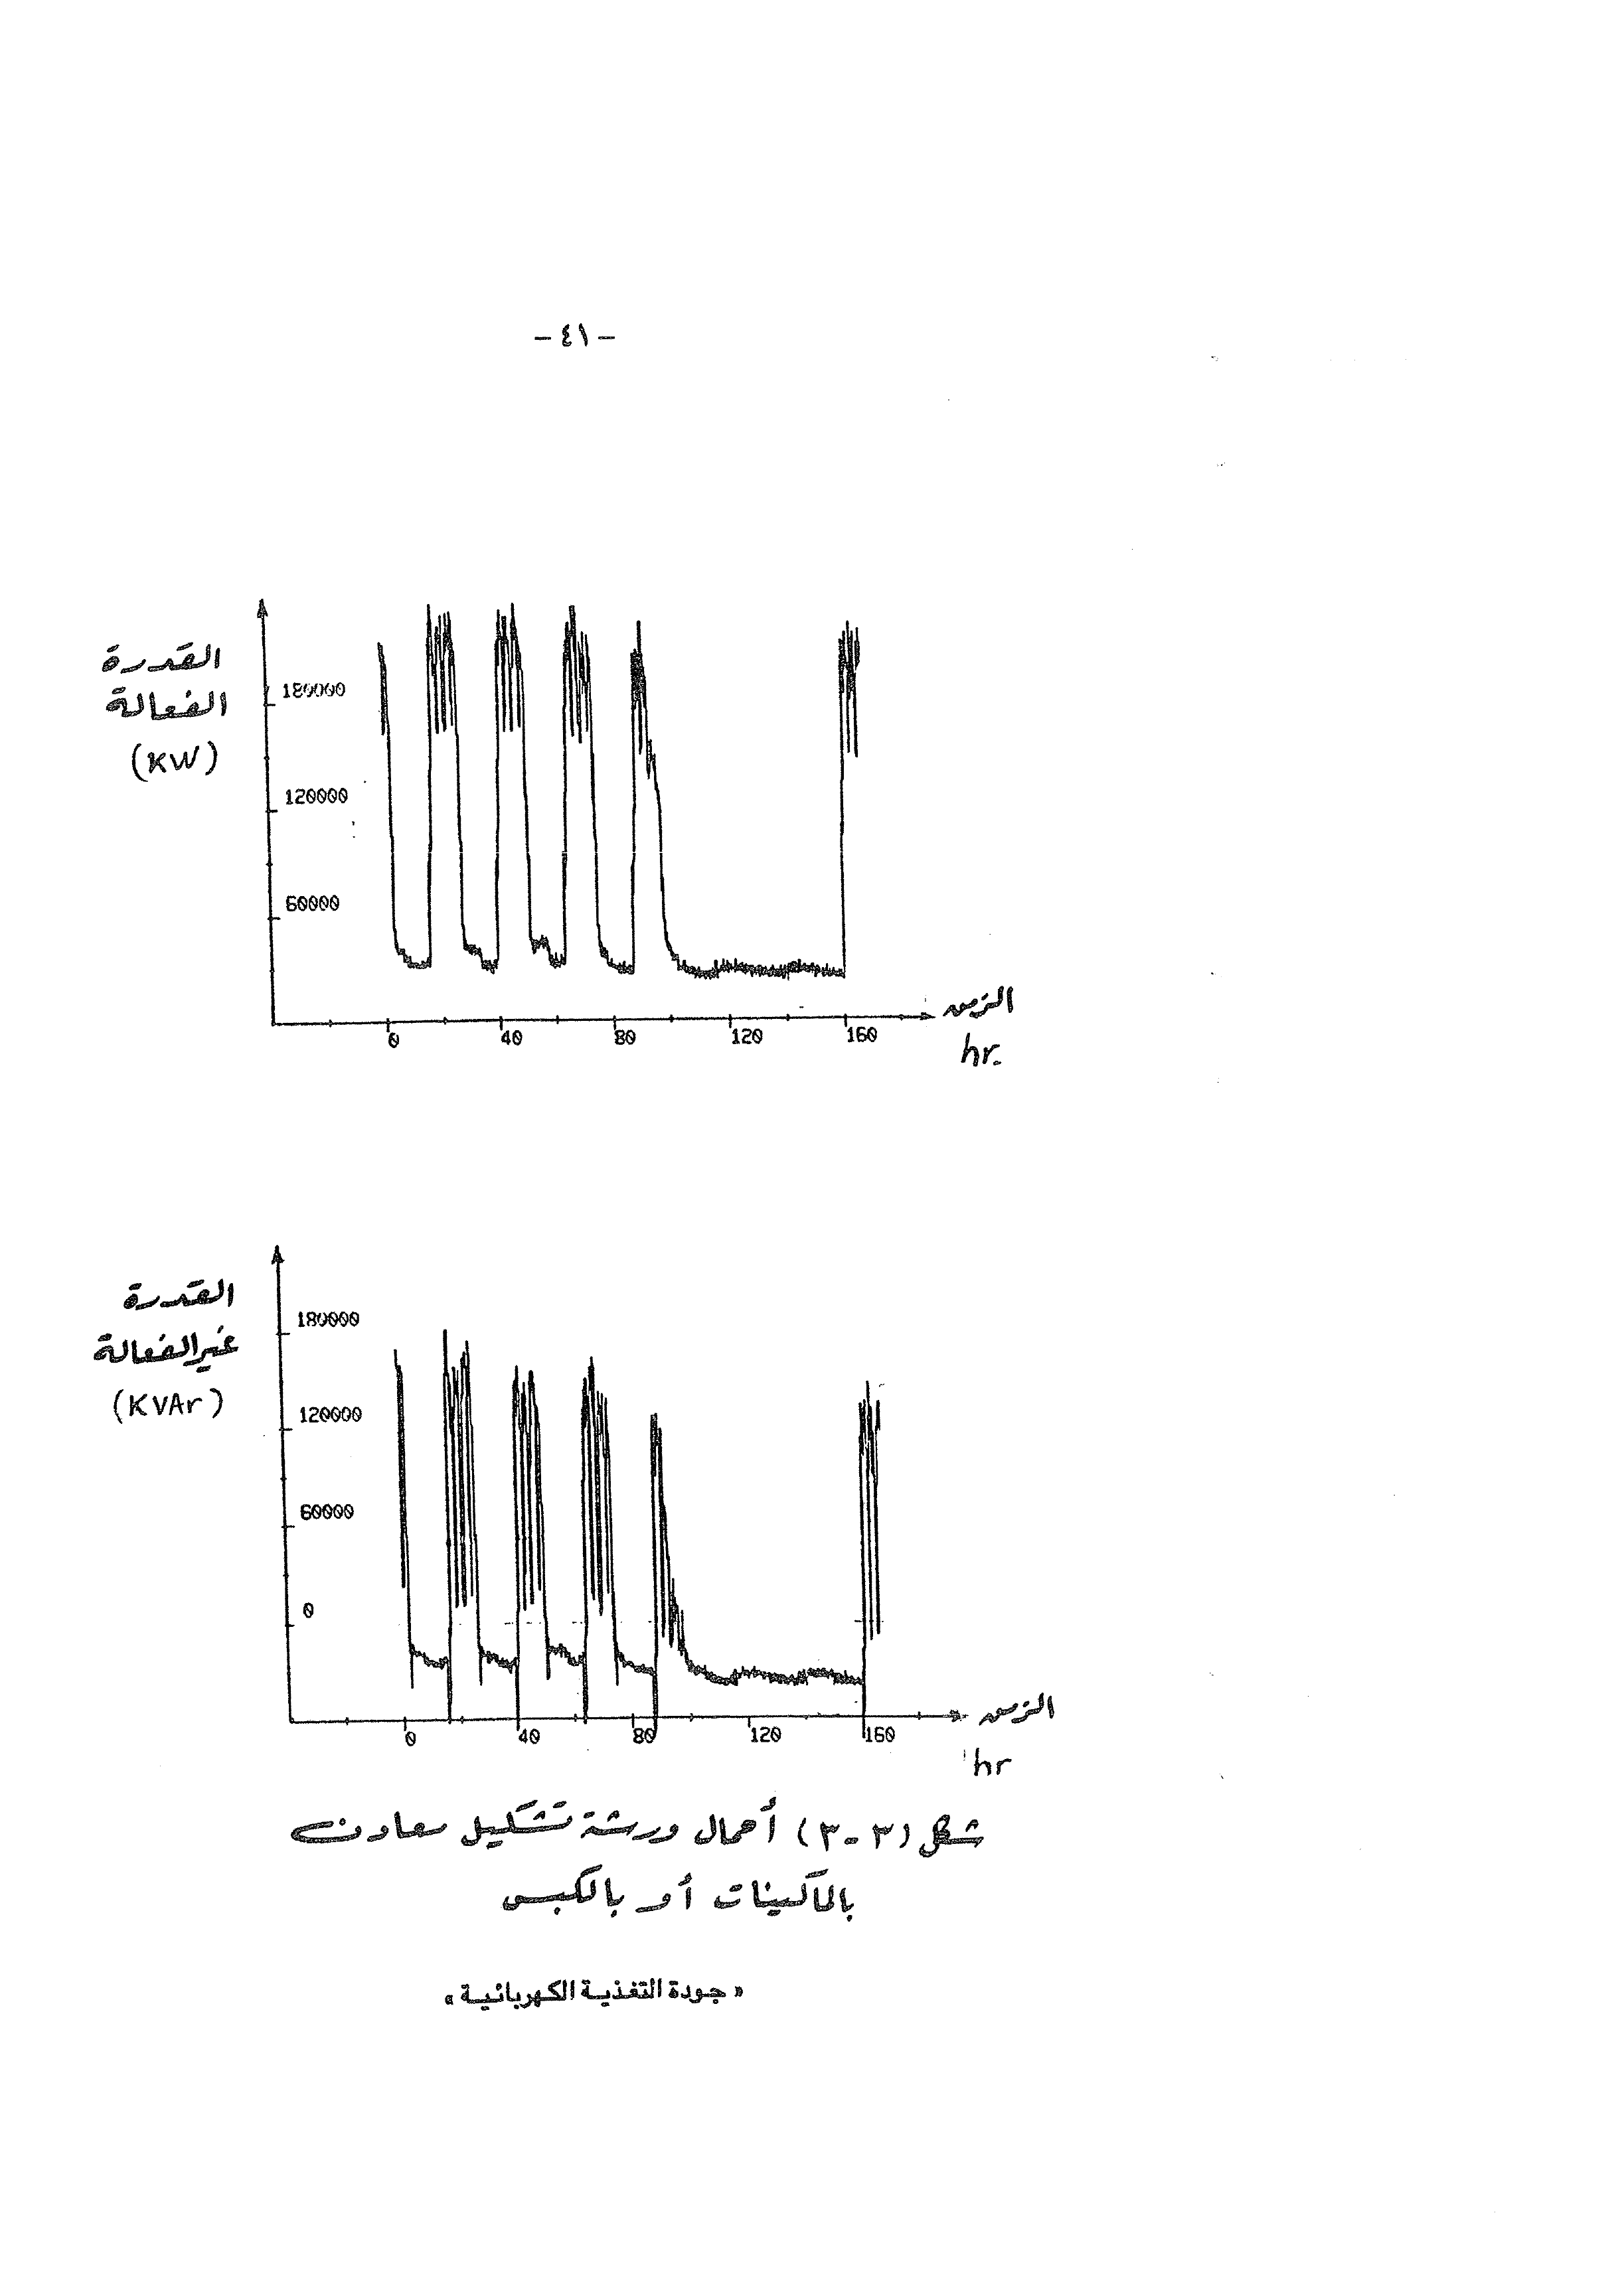 - ٤١ -
القدرة
الفعالة
(KW)
180000
120000
60000
0 40 80 120 160
الزمن
hr.
القدرة
غير الفعالة
(KVAr)
180000
120000
60000
0
0 40 80 120 160
الزمن
hr
شكل (٣-٣) أحمال ورشة تشكيل معادن
بالماكينات أو بالكبس
« جودة التغذية الكهربائية »